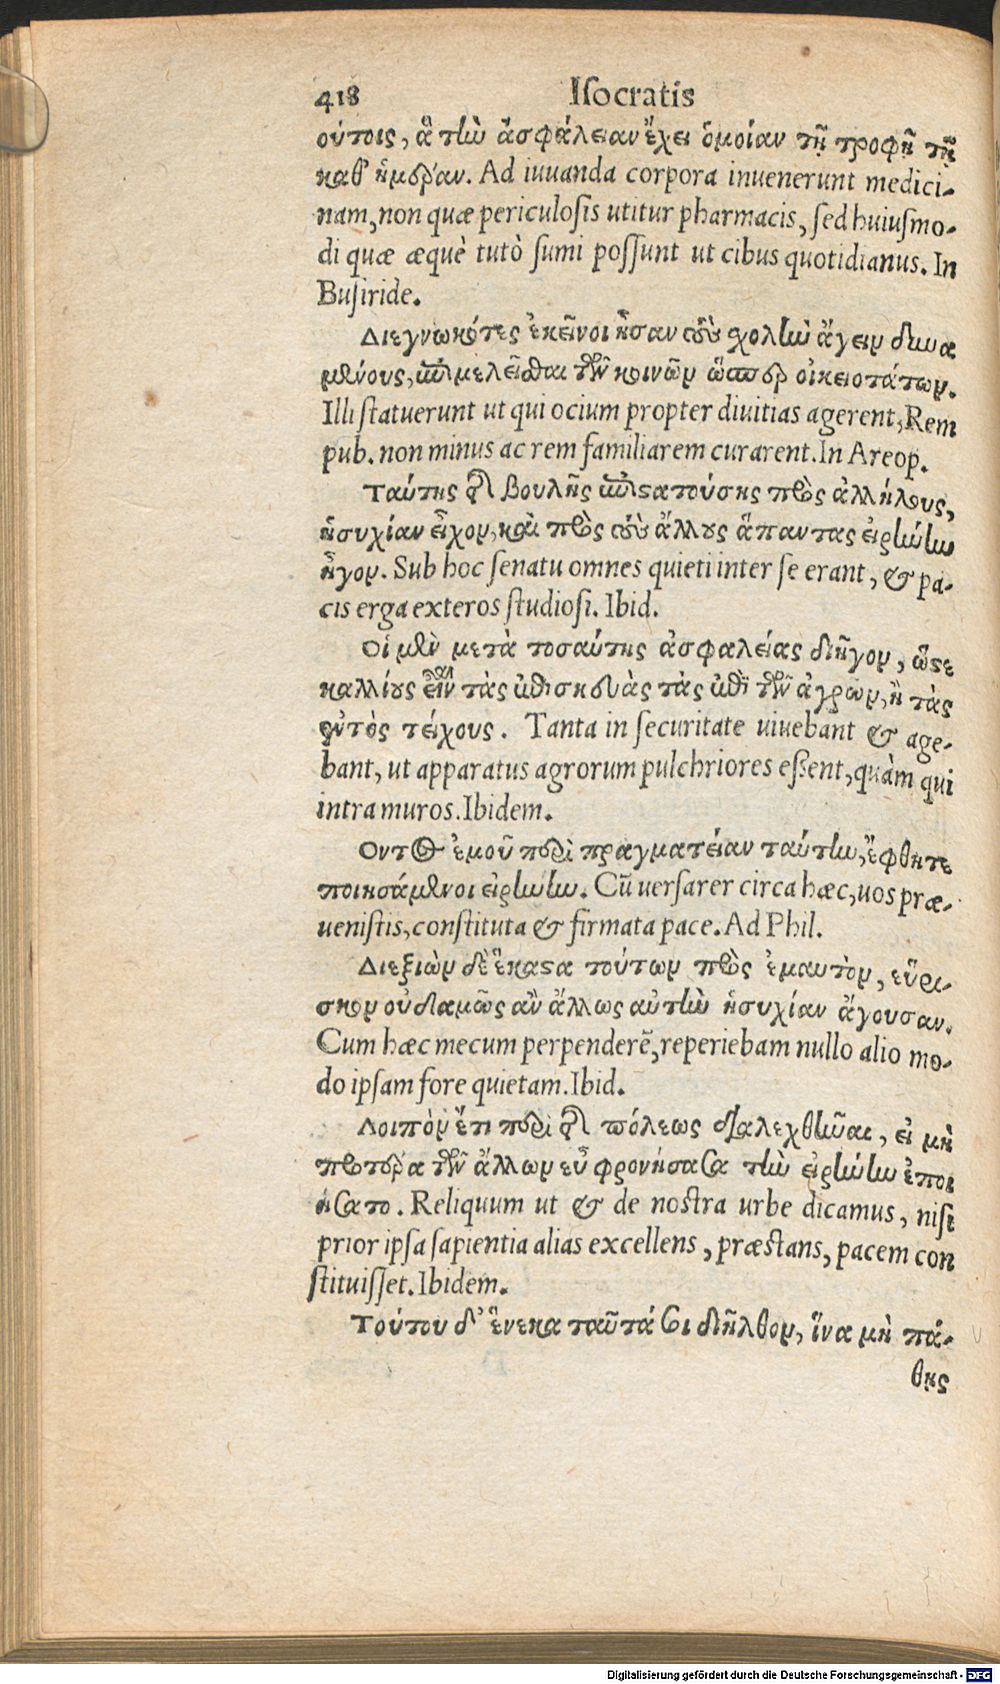 418 Isocratis
ούτοις, ἃ τὴν ἀσφάλειαν ἔχει ὁμοίαν τῇ τροφῇ τῇ
καθ᾽ ἡμέραν. Ad iuuanda corpora inuenerunt medici-
nam, non quæ periculosis utitur pharmacis, sed huiusmo-
di quæ æquè tutò sumi possunt ut cibus quotidianus. In
Busiride.
Διεγνωκότες ἐκεῖνοι ἦσαν τοὺς σχολὴν ἄγειν δυνα
μένους, ἐπιμελεῖσθαι τῶν κοινῶν ὥσπερ οἰκειοτάτων.
Illi statuerunt ut qui ocium propter diuitias agerent, Rem
pub. non minus ac rem familiarem curarent. In Areop.
Ταύτης τῆς βουλῆς ἐπιστατούσης πρὸς ἀλλήλους,
ἡσυχίαν εἶχον, καὶ πρὸς τοὺς ἄλλους ἅπαντας εἰρήνην
ἦγον. Sub hoc senatu omnes quieti inter se erant, & pa-
cis erga exteros studiosi. Ibid.
Οἱ μὲν μετὰ τοσαύτης ἀσφαλείας διῆγον, ὥστε
καλλίους εἶναι τὰς ἐπισκευὰς τὰς ἐπὶ τῶν ἀγρῶν, ἢ τὰς
ἐντὸς τείχους. Tanta in securitate uiuebant & age-
bant, ut apparatus agrorum pulchriores essent, quàm qui
intra muros. Ibidem.
Οντος ἐμοῦ περὶ πραγματείαν ταύτην, ἔφθητε
ποιησάμενοι εἰρήνην. Cū uersarer circa hæc, uos præ-
uenistis, constituta & firmata pace. Ad Phil.
Διεξιὼν δὲ ἕκαστα τούτων πρὸς ἐμαυτὸν, εὕρι-
σκον οὐδαμῶς ἂν ἄλλως αὐτὴν ἡσυχίαν ἄγουσαν.
Cum hæc mecum perpenderē, reperiebam nullo alio mo-
do ipsam fore quietam. Ibid.
Λοιπὸν ἔτι περὶ τῆς πόλεως διαλεχθῆναι, εἰ μὴ
προτέρα τῶν ἄλλων εὖ φρονήσασα τὴν εἰρήνην ἐποι
ήσατο. Reliquum ut & de nostra urbe dicamus, nisi
prior ipsa sapientia alias excellens, præstans, pacem con
stituisset. Ibidem.
Τούτου δ᾽ ἕνεκα ταῦτά σοι διῆλθον, ἵνα μὴ πά-
θῃς
Digitalisierung gefördert durch die Deutsche Forschungsgemeinschaft - DFG